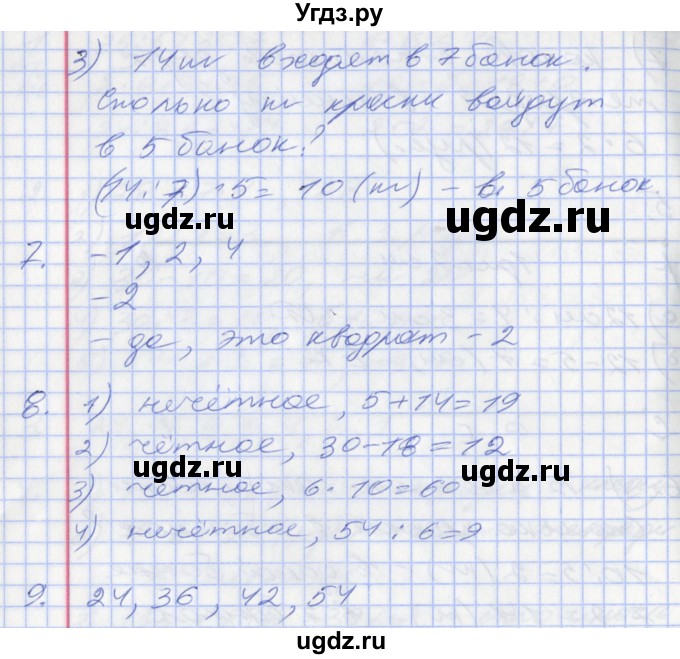 Угдз.ру
3) 14 т входят в 7 банок.
Сколько т краски войдут
в 5 банок?
(14 : 7) · 5 = 10 (т) - в 5 банок.
ugdz.ru
ugdz.ru
7. - 1, 2, 4
- 2
- да, это квадрат - 2
8. 1) нечётное, 5 + 14 = 19
2) чётное, 30 - 18 = 12
ugdz.ru
ugdz.ru
3) чётное, 6 · 10 = 60
4) нечётное, 54 : 6 = 9
9. 24, 36, 42, 54
ugdz.ru